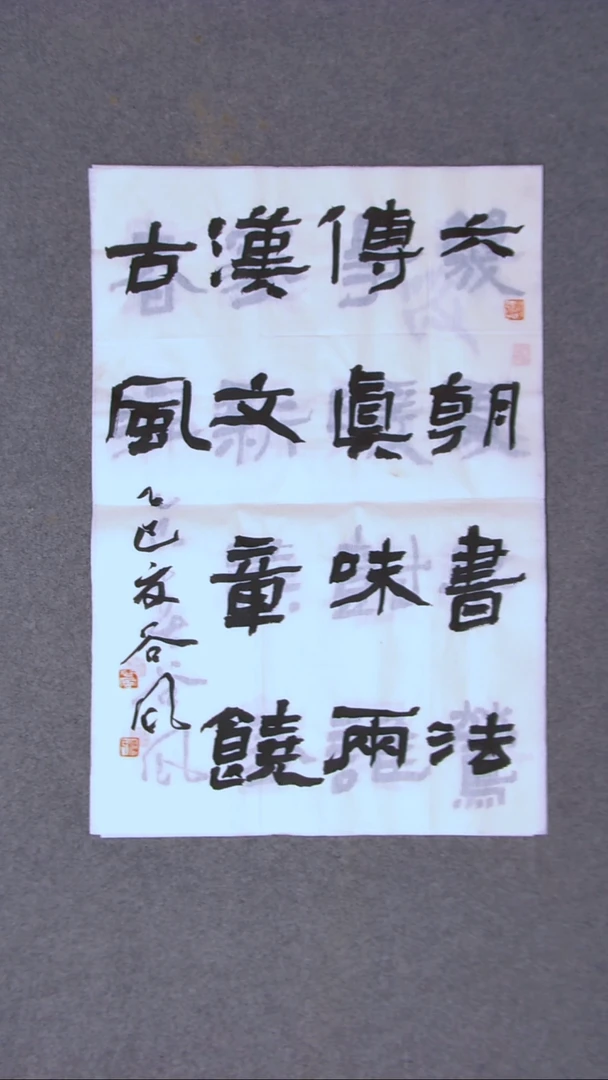 六朝書法
傳真味兩
漢文章饒
古風
乙巳夏谷風